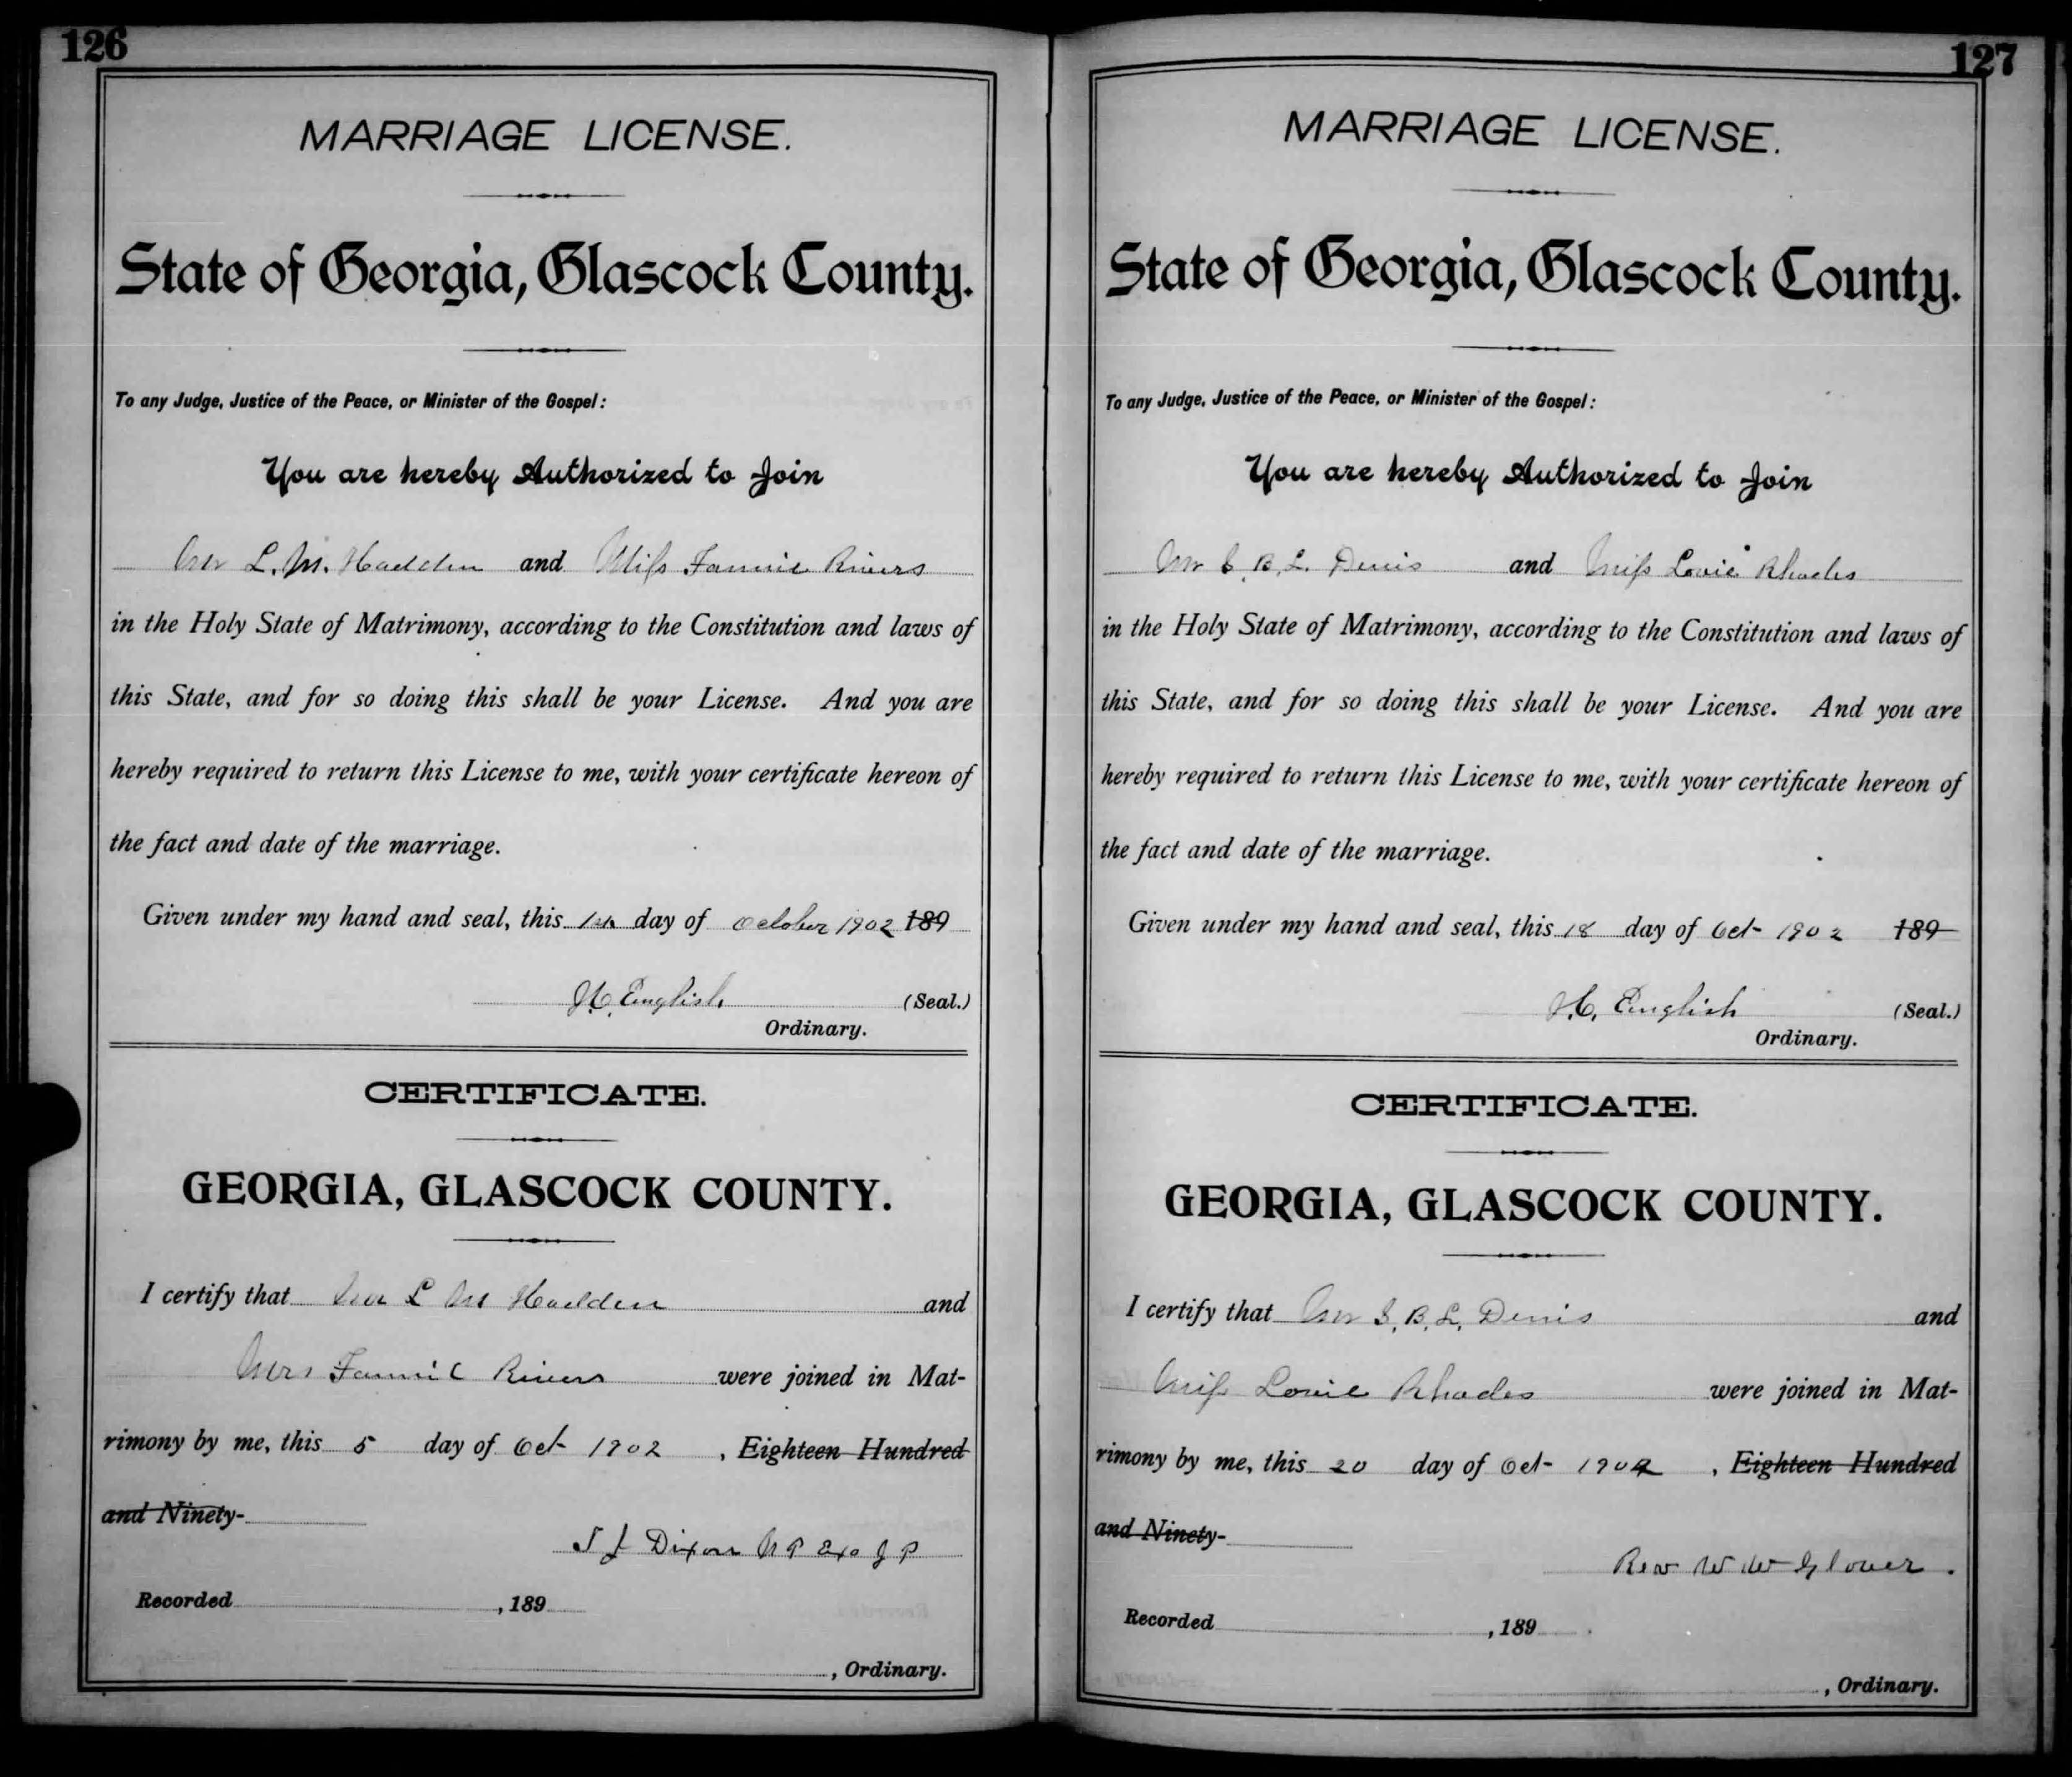 126
MARRIAGE LICENSE.
State of Georgia, Glascock County.
To any Judge, Justice of the Peace, or Minister of the Gospel:
You are hereby Authorized to Join
Mr L. M. Hadden and Miss Fannie Rivers
in the Holy State of Matrimony, according to the Constitution and laws of
this State, and for so doing this shall be your License. And you are
hereby required to return this License to me, with your certificate hereon of
the fact and date of the marriage.
Given under my hand and seal, this day of October 1902 189
J.C. English (Seal.)
Ordinary.
CERTIFICATE.
GEORGIA, GLASCOCK COUNTY.
I certify that Mr L M Hadden and
Mrs Fannie Rivers were joined in Mat-
rimony by me, this 5 day of Oct 1902, Eighteen Hundred
and Ninety-
Dixon N P Exo J P
Recorded , 189
, Ordinary.
127
MARRIAGE LICENSE.
State of Georgia, Glascock County.
To any Judge, Justice of the Peace, or Minister of the Gospel:
You are hereby Authorized to Join
Mr B. L. Denis and Miss Louie Rhodes
in the Holy State of Matrimony, according to the Constitution and laws of
this State, and for so doing this shall be your License. And you are
hereby required to return this License to me, with your certificate hereon of
the fact and date of the marriage.
Given under my hand and seal, this 18 day of Oct- 1902 189
J.C. English (Seal.)
Ordinary.
CERTIFICATE.
GEORGIA, GLASCOCK COUNTY.
I certify that Mr B. L. Denis and
Miss Louie Rhodes were joined in Mat-
rimony by me, this 20 day of Oct- 1902, Eighteen Hundred
and Ninety-
Rev W W Glover.
Recorded , 189
, Ordinary.